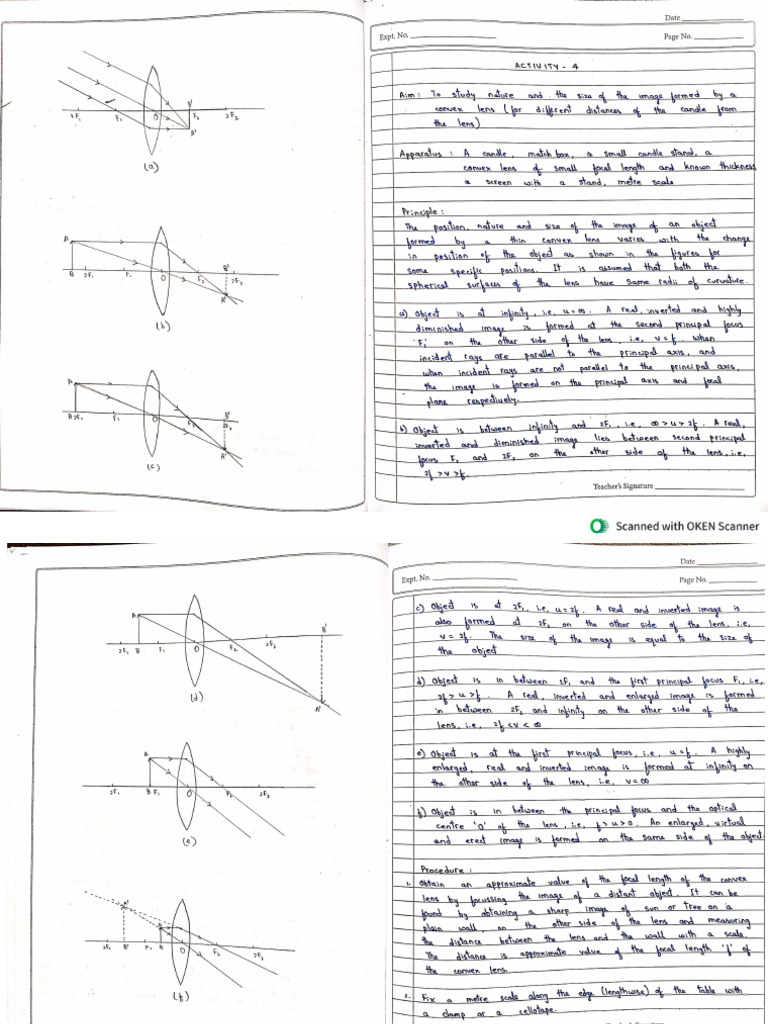 Date
Expt. No.
Page No.
ACTIVITY - 4
Aim: To study nature and the size of the image formed by a
convex lens (for different distances of the candle from
the lens)
Apparatus: A candle, match box, a small candle stand, a
convex lens of small focal length and known thickness
a screen with a stand, metre scale
Principle:
The position, nature and size of the image of an object
formed by a thin convex lens varies with the change
in position of the object as shown in the figures for
some specific positions. It is assumed that both the
spherical surfaces of the lens have same radii of curvature.
a) Object is at infinity, i.e, u=∞. A real, inverted and highly
diminished image is formed at the second principal focus
'F₂' on the other side of the lens, i.e, v=f, when
incident rays are parallel to the principal axis, and
when incident rays are not parallel to the principal axis,
the image is formed on the principal axis and focal
plane respectively.
b) Object is between infinity and 2F₁, i.e, ∞>u>2f. A real,
inverted and diminished image lies between second principal
focus F₂ and 2F₂ on the other side of the lens, i.e,
2f >v >f.
Teacher's Signature
2F₁ F₁ O F₂ 2F₂
B'
A'
(a)
A
B 2F₁ O F₂ B' 2F₂
A'
(b)
A
B 2F₁ F₁ O F₂ B' 2F₂
A'
(c)
Scanned with OKEN Scanner
Date
Expt. No.
Page No.
c) Object is at 2F₁, i.e, u=2f. A real and inverted image is
also formed at 2F₂ on the other side of the lens, i.e,
v = 2f. The size of the image is equal to the size of
the object
d) Object is in between 2F₁ and the first principal focus, F₁, i.e,
2f>u>f. A real, inverted and enlarged image is formed
in between 2F₂ and infinity on the other side of the
lens, i.e, 2f<v<∞
e) Object is at the first principal focus, i.e, u=f. A highly
enlarged, real and inverted image is formed at infinity on
the other side of the lens, i.e, v=∞
f) Object is in between the principal focus and the optical
centre 'O' of the lens, i.e, f>u>0. An enlarged, virtual
and erect image is formed on the same side of the object.
Procedure:
1. Obtain an approximate value of the focal length of the convex
lens by focussing the image of a distant object. It can be
found by obtaining a sharp image of sun or tree on a
plain wall, on the other side of the lens and measuring
the distance between the lens and the wall with a scale.
The distance is approximate value of the focal length 'f' of
the convex lens.
2. Fix a metre scale along the edge (lengthwise) of the table with
a clamp or a cellotape.
A
2F₁ B F₁ O F₂ B'
A'
(d)
A
2F₁ B F₁ O F₂ 2F₂
(e)
A'
2F₁ B' F₁ B O F₂ 2F₂
(f)